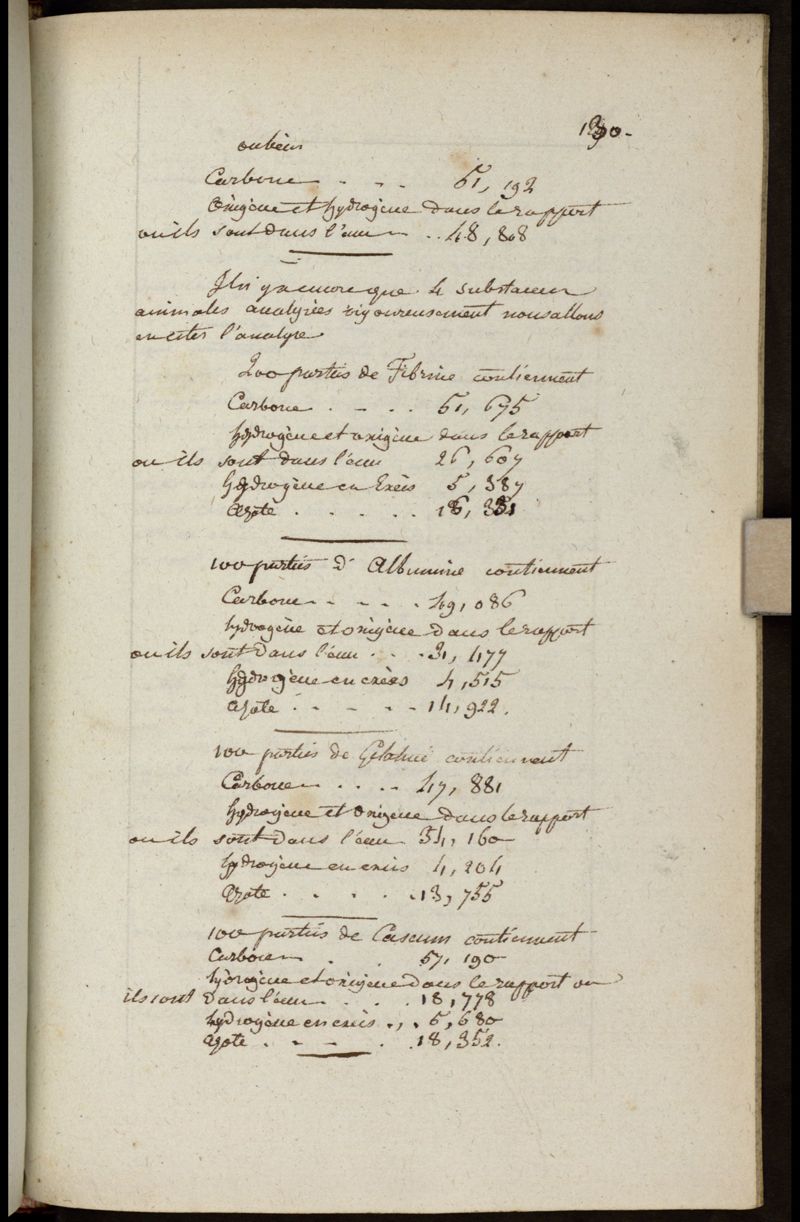 190.
ou bien
Carbone . . . 51, 192
Oxigène et hydrogène dans le rapport
ou ils sont dans l'eau . . 48, 808
Il n'y a encore que 4 substances
animales analysées rigoureusement nous allons
en citer l'analyse
100 parties de Fibrine contiennent
Carbone . . . . 51, 675
hydrogène et oxigène dans le rapport
ou ils sont dans l'eau 26, 607
hydrogène en Exès 5, 387
Azote . . . . . 16, 331
100 parties d'Albumine contiennent
Carbone . . . . 49, 086
hydrogène et oxigène dans le rapport
ou ils sont dans l'eau . . . 31, 477
hydrogène en exès 4, 515
azote . . . . . 14, 922.
100 parties de Gélatine contiennent
Carbone . . . . 47, 881
hydrogène et oxigène dans le rapport
ou ils sont dans l'eau 34, 160
hydrogène en exès 4, 204
Azote . . . . . 13, 755
100 parties de Caseum contiennent
Carbone . . 57, 190
hydrogène et oxigène dans le rapport ou
ils sont dans l'eau . . . 18, 778
hydrogène en exès . , . 5, 680
azote . . . . . 18, 352.